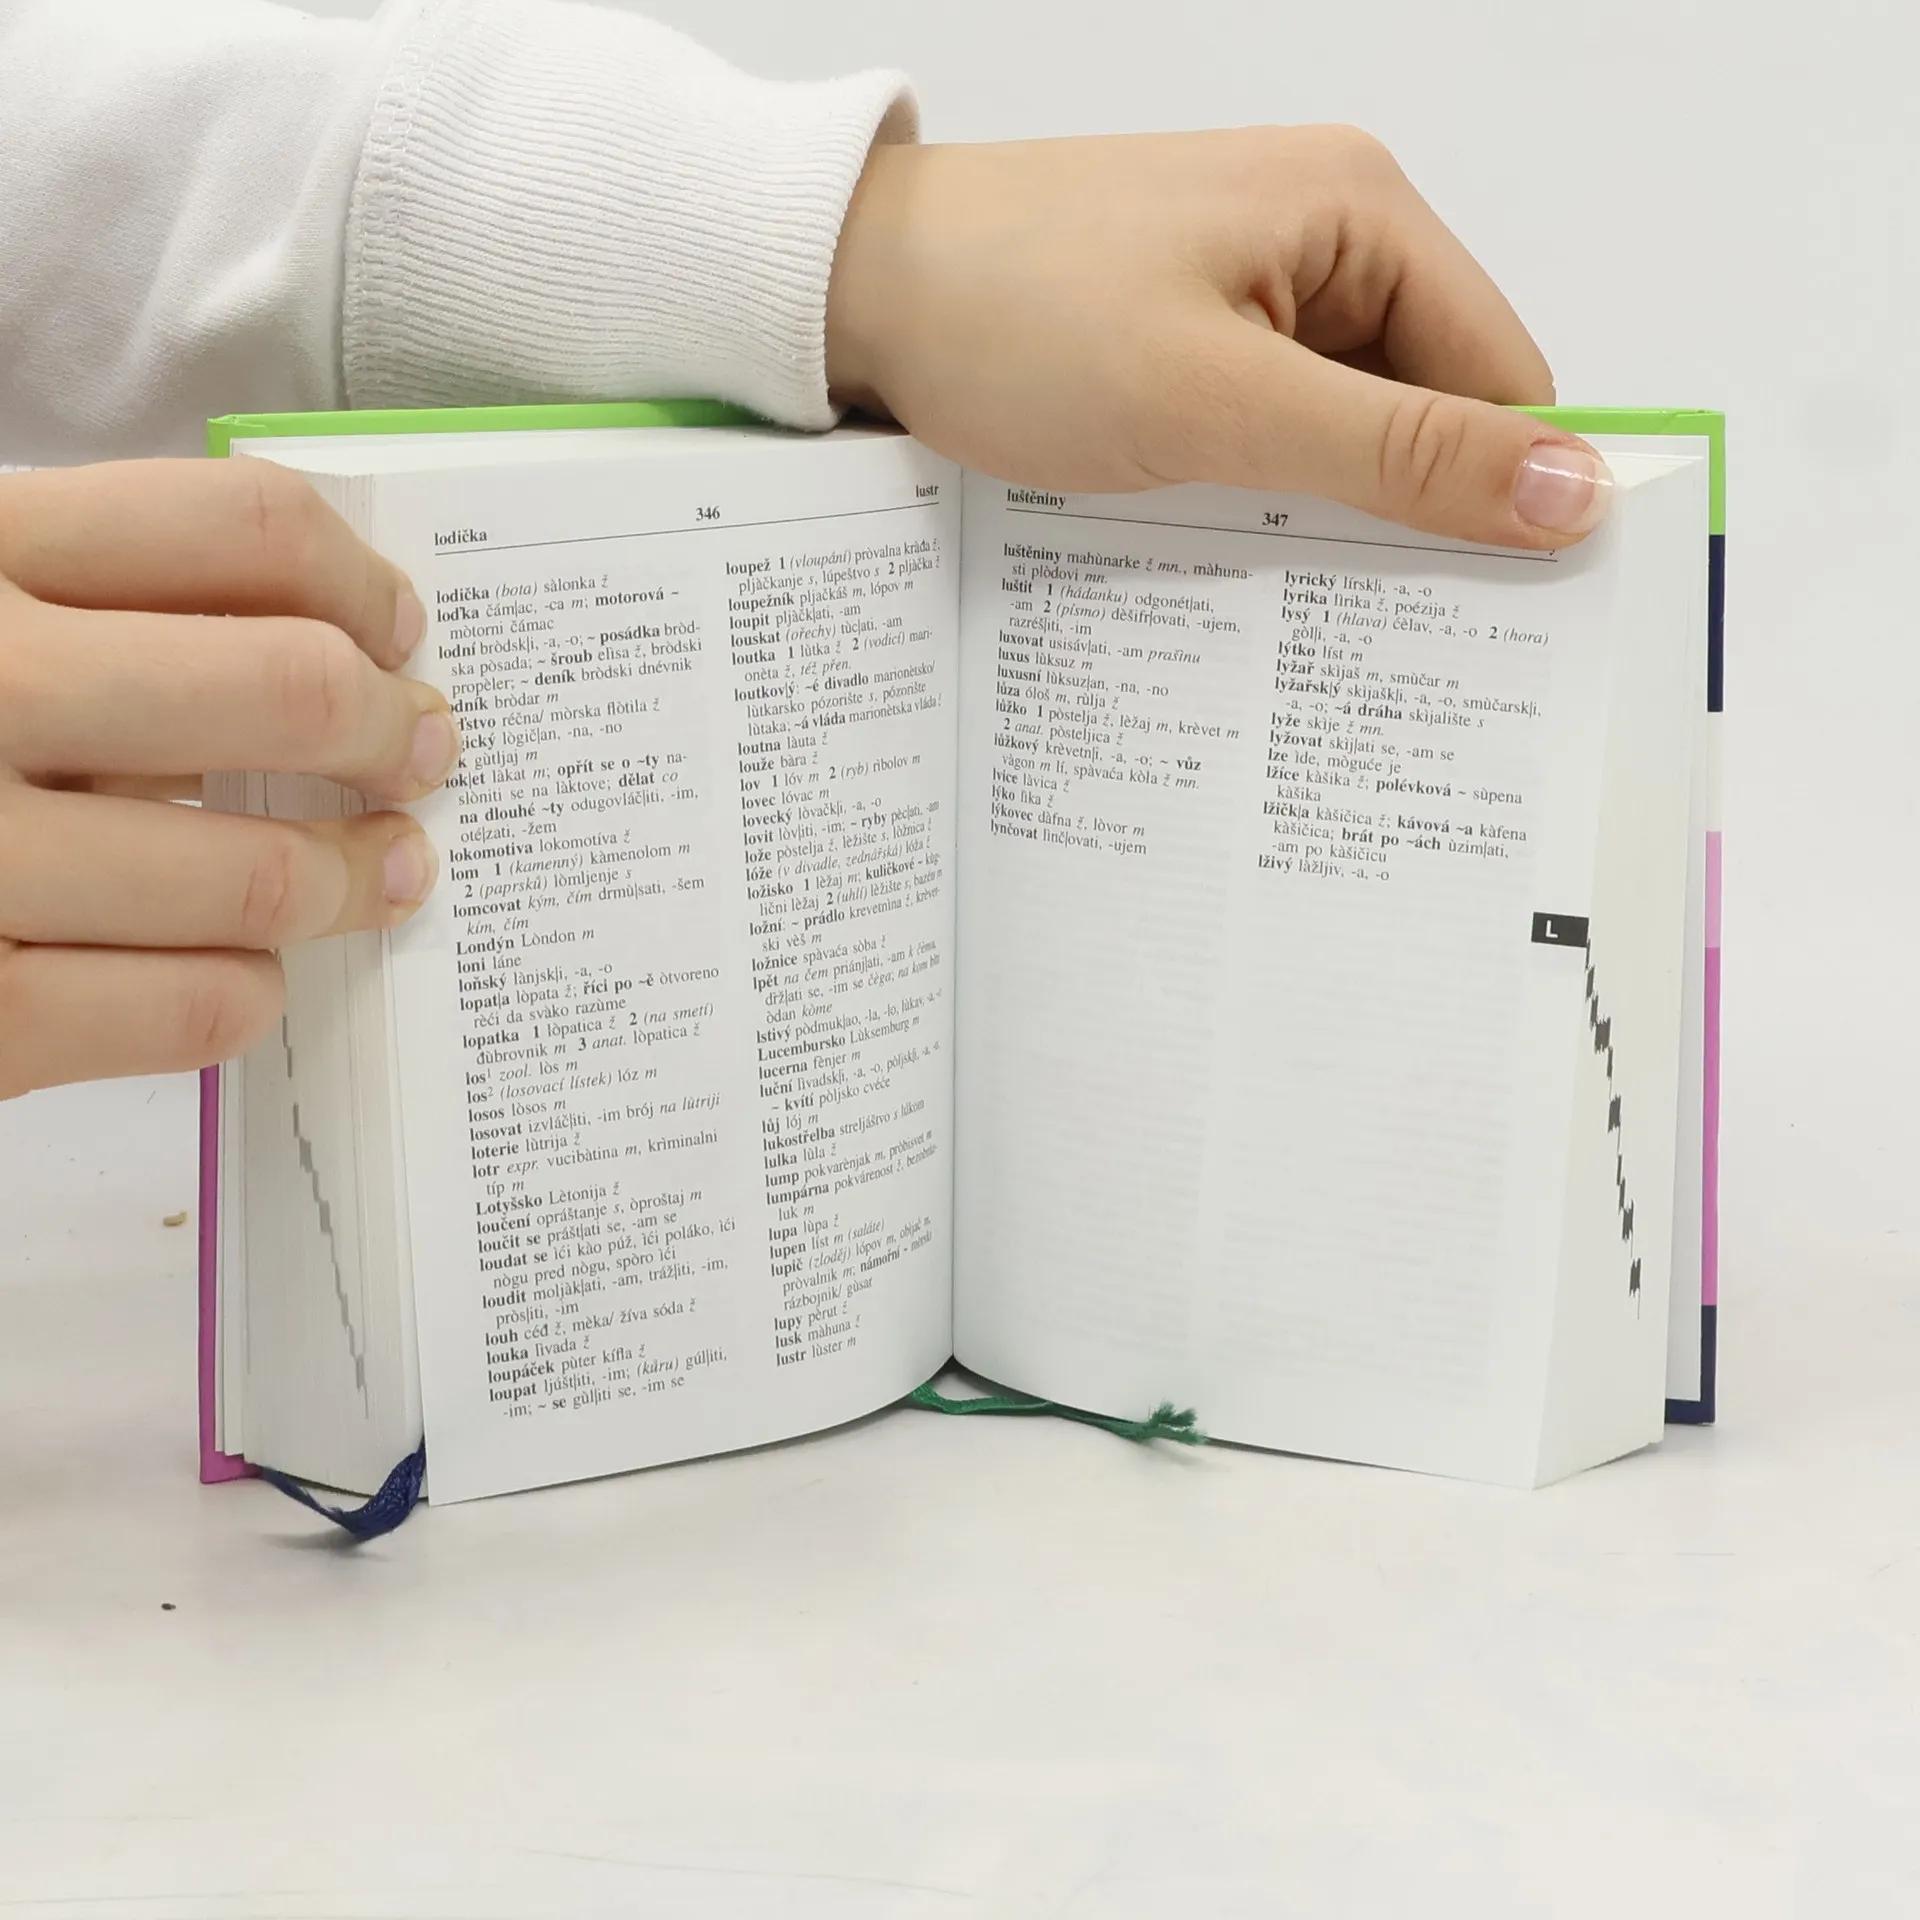 lodička
346
lustr
lodička (bota) sàlonka ž
loďka čám|ac, -ca m; motorová ~
mòtorni čámac
lodní bròdsk|i, -a, -o; ~ posádka bròd-
ska pòsada; ~ šroub elìsa ž, bròdski
propèler; ~ deník bròdski dnévnik
bròdar m
réčna/ mòrska flòtila ž
lògič|an, -na, -no
gùtljaj m
lok|et làkat m; opřít se o ~ty na-
slòniti se na làktove; dělat co
na dlouhé ~ty odugovláč|iti, -im,
oté|zati, -žem
lokomotiva lokomotíva ž
lom 1 (kamenný) kàmenolom m
2 (paprsků) lòmljenje s
lomcovat kým, čím drmù|sati, -šem
kím, čím
Londýn Lòndon m
loni láne
loňský lànjsk|i, -a, -o
lopat|a lòpata ž; říci po ~ě òtvoreno
rèći da svàko razùme
lopatka 1 lòpatica ž 2 (na smetí)
đùbrovnik m 3 anat. lòpatica ž
los¹ zool. lòs m
los² (losovací lístek) lóz m
losos lòsos m
losovat izvláč|iti, -im brój na lùtriji
loterie lùtrija ž
lotr expr. vucibàtina m, krìminalni
típ m
Lotyšsko Lètonija ž
loučení opráštanje s, òproštaj m
loučit se prášt|ati se, -am se
loudat se ìći kào púž, ìći poláko, ìći
nògu pred nògu, spòro ìći
loudit moljàk|ati, -am, tráž|iti, -im,
pròs|iti, -im
louh céđ ž, mèka/ žíva sóda ž
louka lìvada ž
loupáček pùter kífla ž
loupat ljúšt|iti, -im; (kůru) gúl|iti,
-im; ~ se gùl|iti se, -im se
loupež 1 (vloupání) pròvalna kràđa ž,
pljàčkanje s, lúpeštvo s 2 pljàčka ž
loupežník pljačkáš m, lópov m
loupit pljàčk|ati, -am
louskat (ořechy) tùc|ati, -am
loutka 1 lùtka ž 2 (vodicí) mari-
onèta ž, též přen.
loutkov|ý: ~é divadlo marionètsko/
lùtkarsko pózorište s, pózorište
lùtaka; ~á vláda marionètska vláda!
loutna làuta ž
louže bàra ž
lov 1 lóv m 2 (ryb) rìbolov m
lovec lóvac m
lovecký lòvačk|i, -a, -o
lovit lòv|iti, -im; ~ ryby pèc|ati, -am
lože pòstelja ž, lèžište s, lòžnica ž
lóže (v divadle, zednářská) lóža ž
ložisko 1 lèžaj m; kuličkové ~ kùg-
lični lèžaj 2 (uhlí) lèžište s, bazén m
ložní: ~ prádlo krevetnìna ž, krèvet-
ski vèš m
ložnice spàvaća sòba ž
lpět na čem priánj|ati, -am k čému,
dřž|ati se, -im se čèga; na kom bìti
òdan kòme
lstivý pòdmuk|ao, -la, -lo, lùkav, -a, -o
Lucembursko Lùksemburg m
lucerna fènjer m
luční lìvadsk|i, -a, -o, pòljsk|i, -a, -o
~ kvítí pòljsko cvéće
lůj lój m
lukostřelba streljáštvo s lúkom
lulka lùla ž
lump pokvarènjak m, pròbisvet m
lumpárna pokvárenost ž, bezobráz-
luk m
lupa lùpa ž
lupen líst m (saláte)
lupič (zloděj) lópov m, obìjač m,
pròvalnik m; námořní ~ mòrski
rázbojnik/ gùsar
lupy pèrut ž
lusk màhuna ž
lustr lùster m
luštěniny
347
luštěniny mahùnarke ž mn., màhuna-
sti plòdovi mn.
luštit 1 (hádanku) odgonét|ati,
-am 2 (písmo) dèšifr|ovati, -ujem,
razréš|iti, -im
luxovat usisáv|ati, -am prašìnu
luxus lùksuz m
luxusní lùksuz|an, -na, -no
lůza óloš m, rùlja ž
lůžko 1 pòstelja ž, lèžaj m, krèvet m
2 anat. pòsteljica ž
lůžkový krèvetn|i, -a, -o; ~ vůz
vàgon m lí, spàvaća kòla ž mn.
lvice làvica ž
lýko lìka ž
lýkovec dàfna ž, lòvor m
lynčovat lìnč|ovati, -ujem
lyrický lírsk|i, -a, -o
lyrika lìrika ž, poézija ž
lysý 1 (hlava) ćèlav, -a, -o 2 (hora)
gòl|i, -a, -o
lýtko líst m
lyžař skìjaš m, smùčar m
lyžařsk|ý skìjašk|i, -a, -o, smùčarsk|i,
-a, -o; ~á dráha skìjalište s
lyže skìje ž mn.
lyžovat skìj|ati se, -am se
lze ìde, mòguće je
lžíce kàšika ž; polévková ~ sùpena
kàšika
lžičk|a kàšičica ž; kávová ~a kàfena
kàšičica; brát po ~ách ùzim|ati,
-am po kàšičicu
lživý làžljiv, -a, -o
L